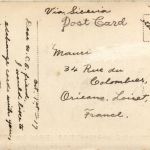 Via Siberia
Post Card
Mauri
34 Rue du
Colombier,
Orleans, Loiret,
France.
would like to
exchange cards with you.